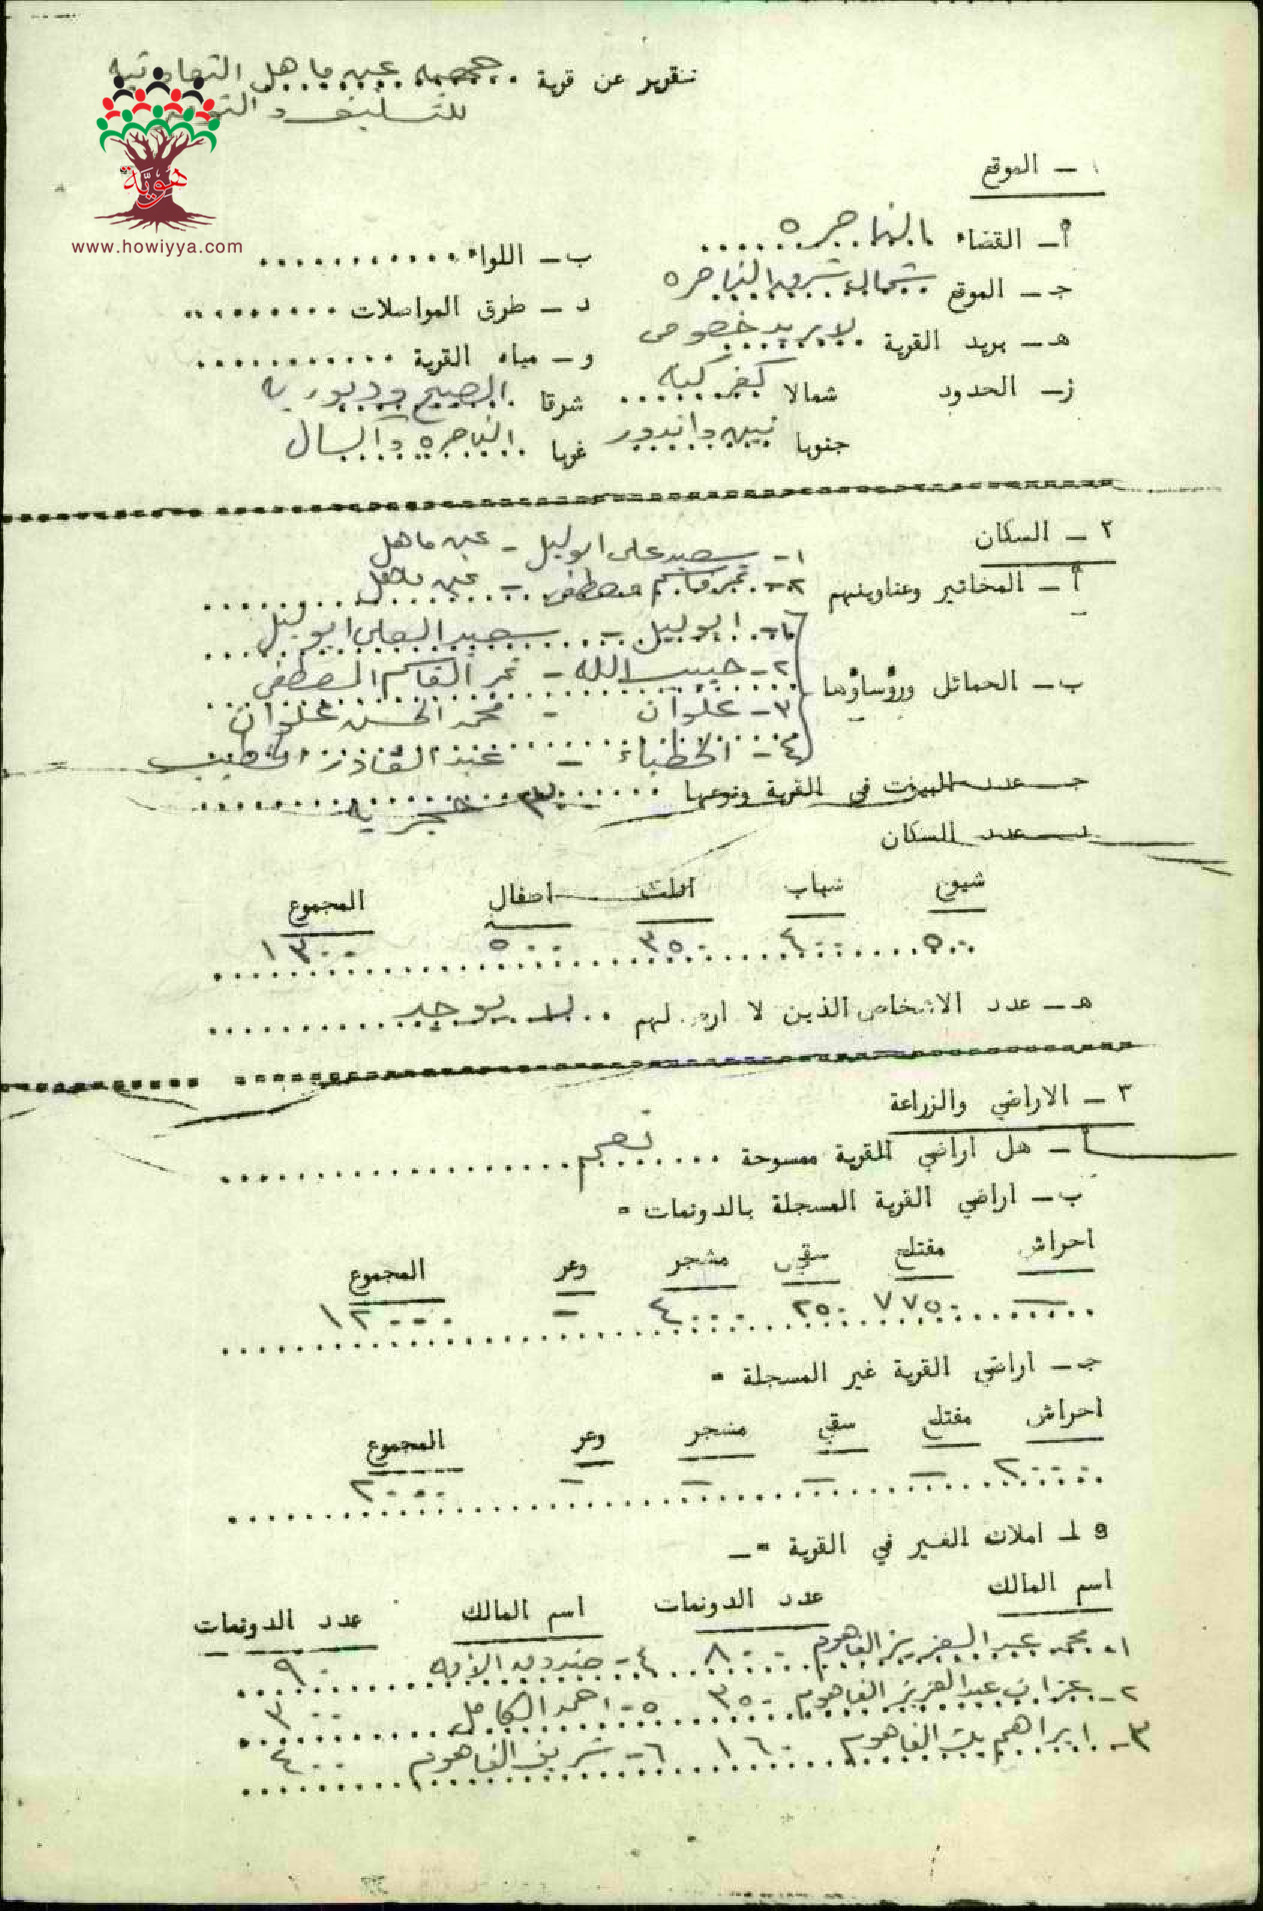 تقرير عن قرية جمعية عين ماهل التعاونية
للتسليف و التوفير
هويّة
www.howiyya.com
١ – الموقع
أ – القضاء الناصره
ب – اللواء
ج – الموقع شمال شرق الناصره
د – طرق المواصلات
هـ – بريد القرية لا بريد خصوصي
و – مياه القرية
ز – الحدود شمالا كفر كنه شرقا الصبيح ودبوريه
جنوبا نين واندور غربا الناصره واكسال
٢ – السكان
أ – المخاتير وعناوينهم ١- سعيد علي ابو ليل – عين ماهل
٢- نمر قاسم مصطفى – عين ماهل
ب – الحمائل ورؤساؤها
١- ابو ليل – سعيد العلي ابو ليل
٢- حبيب الله – نمر القاسم المصطفى
٣- علوان – محمد الحسن علوان
٤- الخطباء – عبد القادر الخطيب
جـ عدد البيوت في القرية ونوعها ٣٠٠ حجريه
د – عدد السكان
شيوخ شباب اناث اطفال المجموع
٥٠ ٤٠٠ ٣٥٠ ٥٠٠ ١٣٠٠
هـ – عدد الاشخاص الذين لا ارض لهم لا يوجد
٣ – الاراضي والزراعة
أ – هل اراضي القرية ممسوحة نعم
ب – اراضي القرية المسجلة بالدونمات =
احراش مفتلح سقي مشجر وعر المجموع
— ٧٧٥٠ ٢٥٠ ٤٠٠٠ – ١٢٠٠٠
جـ – اراضي القرية غير المسجلة =
احراش مفتلح سقي مشجر وعر المجموع
٢٠٠٠ – – – – ٢٠٠٠
املاك الغير في القرية = –
اسم المالك عدد الدونمات اسم المالك عدد الدونمات
١- محمد عبد العزيز الفاهوم ٨٠٠ ٤- صندوق الامه ٩٠
٢- عبد العزيز الفاهوم ٣٥٠ ٥- احمد الكامل ٣٠٠
٣- ابراهيم بك الفاهوم ١٦٠ ٦- شريف الفاهوم ٤٠٠